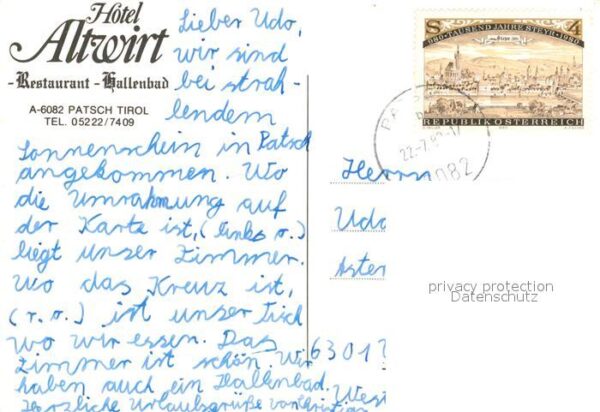 Hotel
Altwirt
-Restaurant-Hallenbad
A-6082 PATSCH TIROL
TEL. 05222/7409
Lieber Udo,
wir sind
bei strah-
lendem
Sonnenschein in Patsch
angekommen. Wo
die Umrahmung auf
der Karte ist, (links o.)
liegt unser Zimmer.
Wo das Kreuz ist,
(r. o.) ist unser Tisch
wo wir essen. Das
Zimmer ist schön. Wir
haben auch ein Hallenbad.
Herzliche Urlaubsgrüße von Christian
S 4
980-TAUSEND JAHRE STEYR-1980
REPUBLIK ÖSTERREICH
22.-7.80-17
6082
Herrn
Udo
Aster
6301
privacy protection
Datenschutz